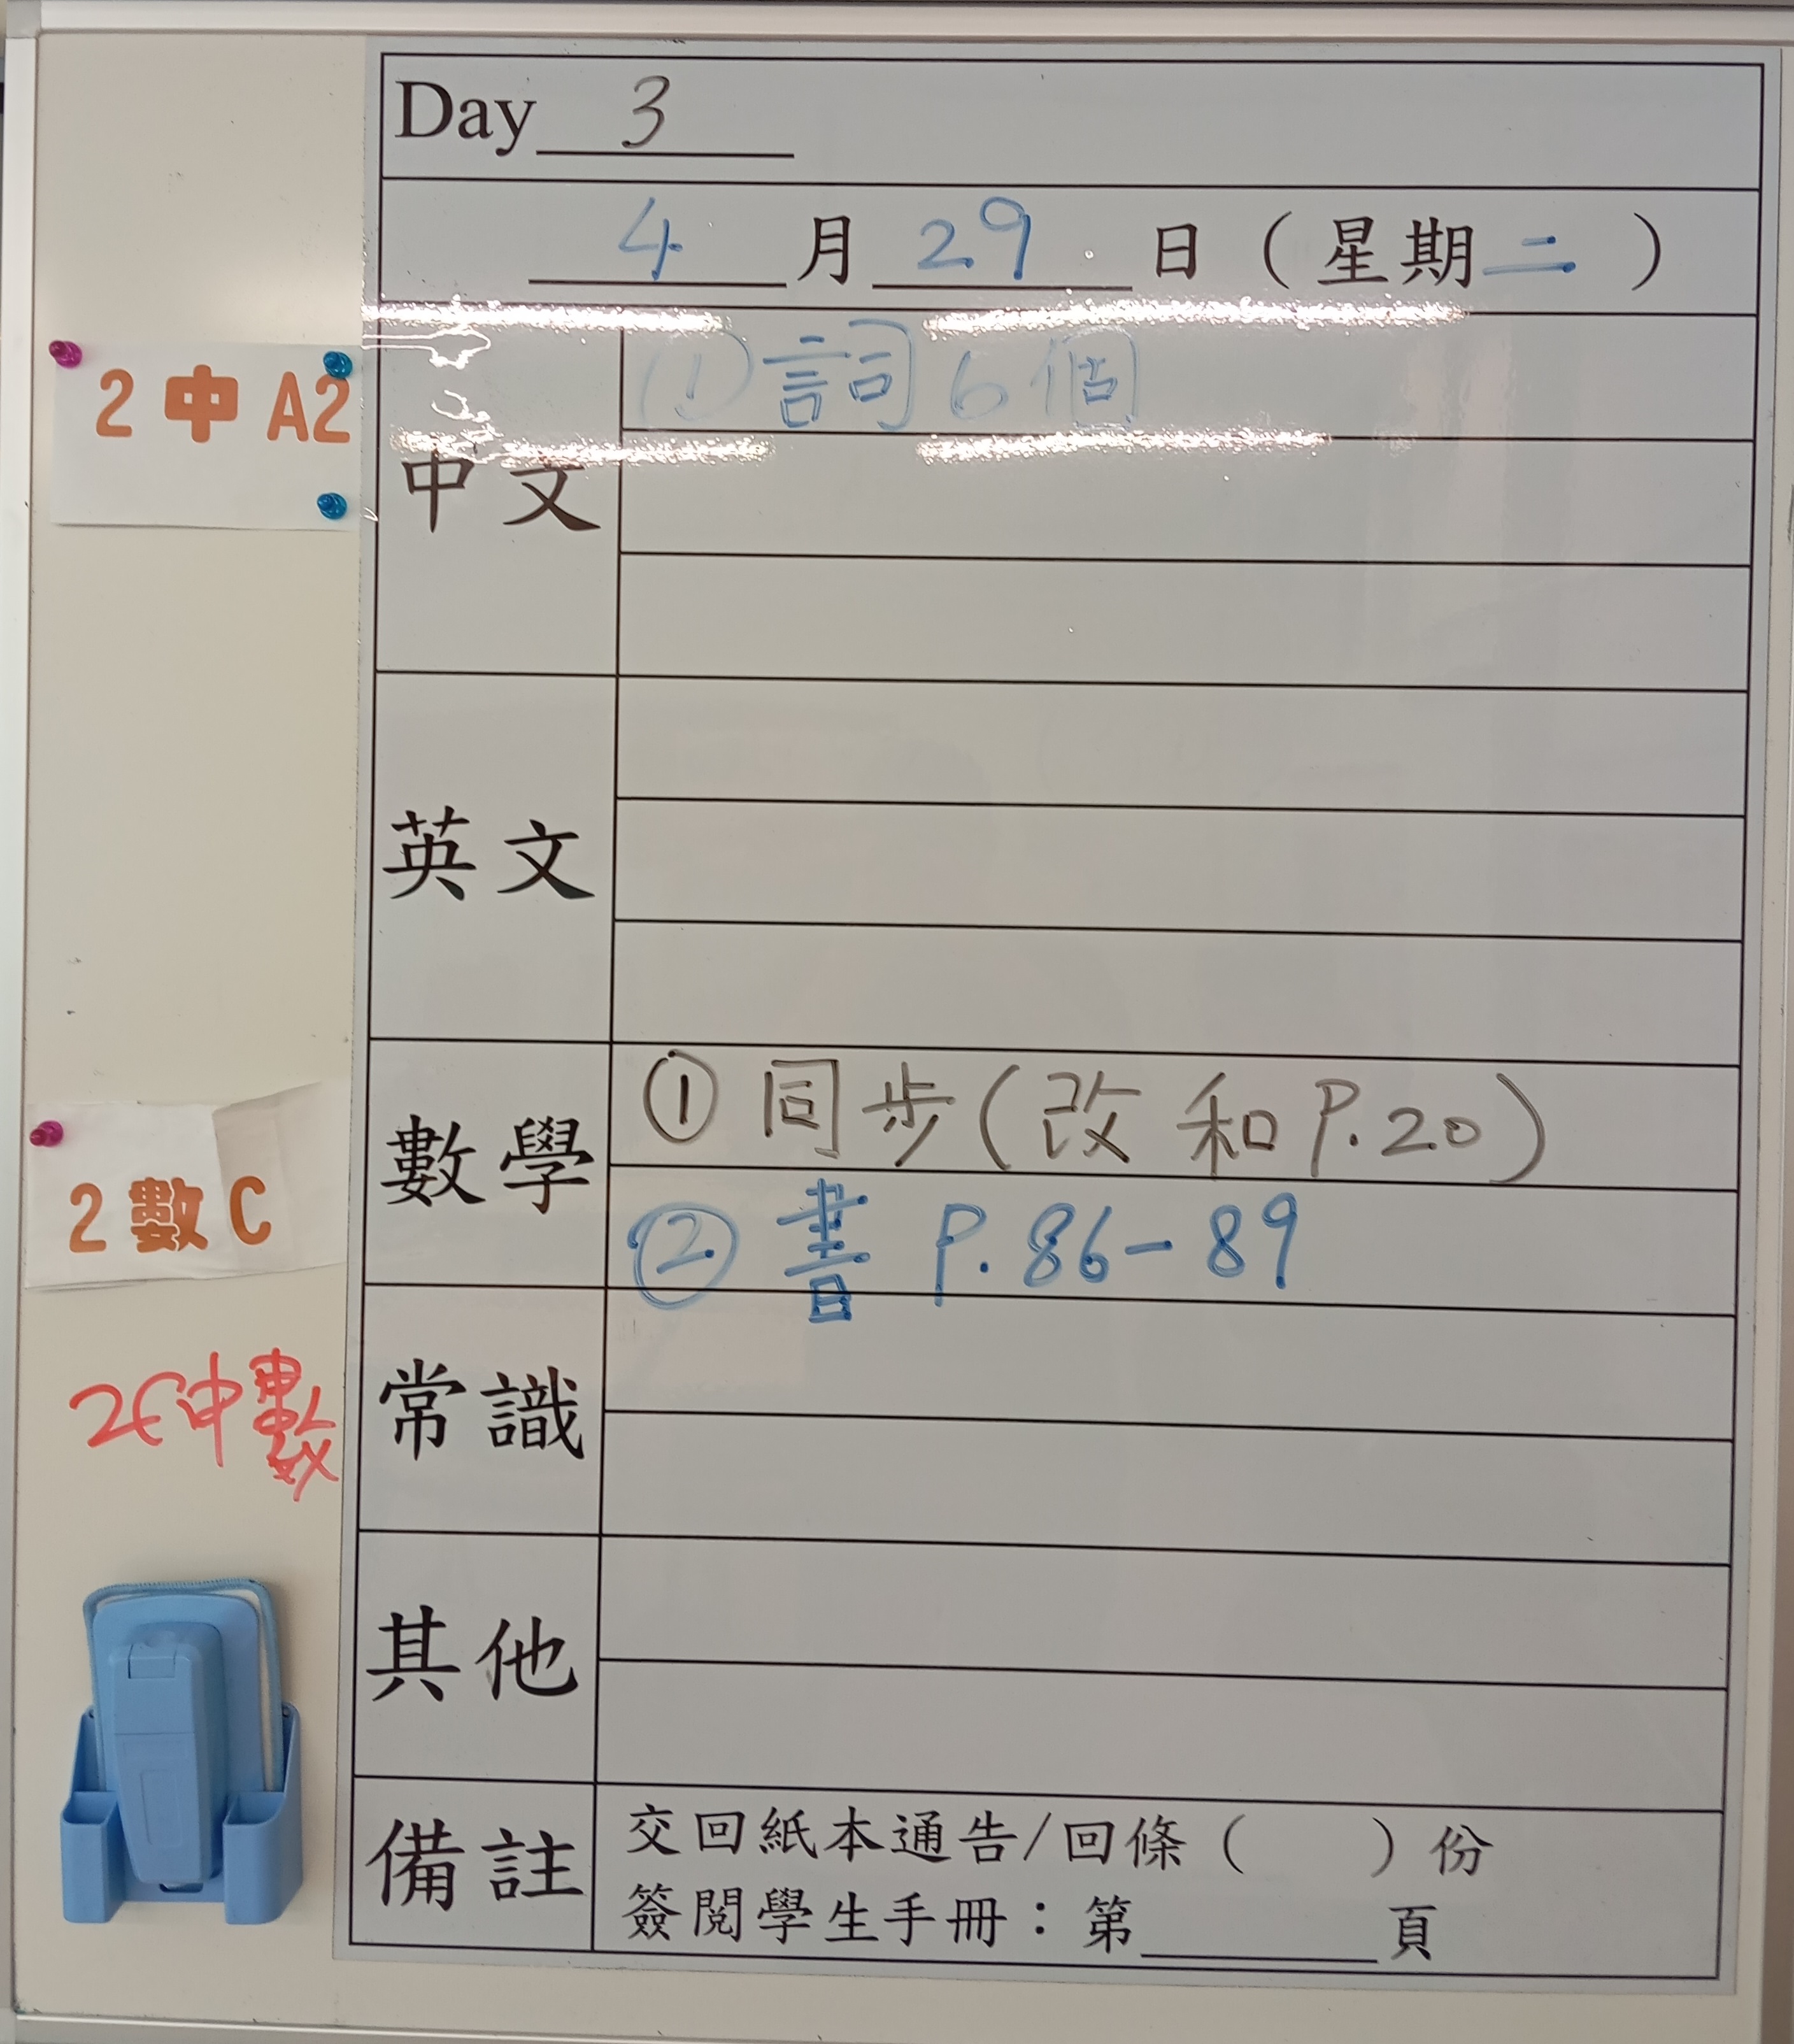 Day 3
4 月 29 日 ( 星期 二 )
2 中 A2
中文
① 詞 6 個
英文
2 數 C
數學
① 同步 ( 改 和 P.20 )
② 書 P. 86 - 89
常識
其他
備註
交回紙本通告/回條 (　　) 份
簽閱學生手冊：第________頁